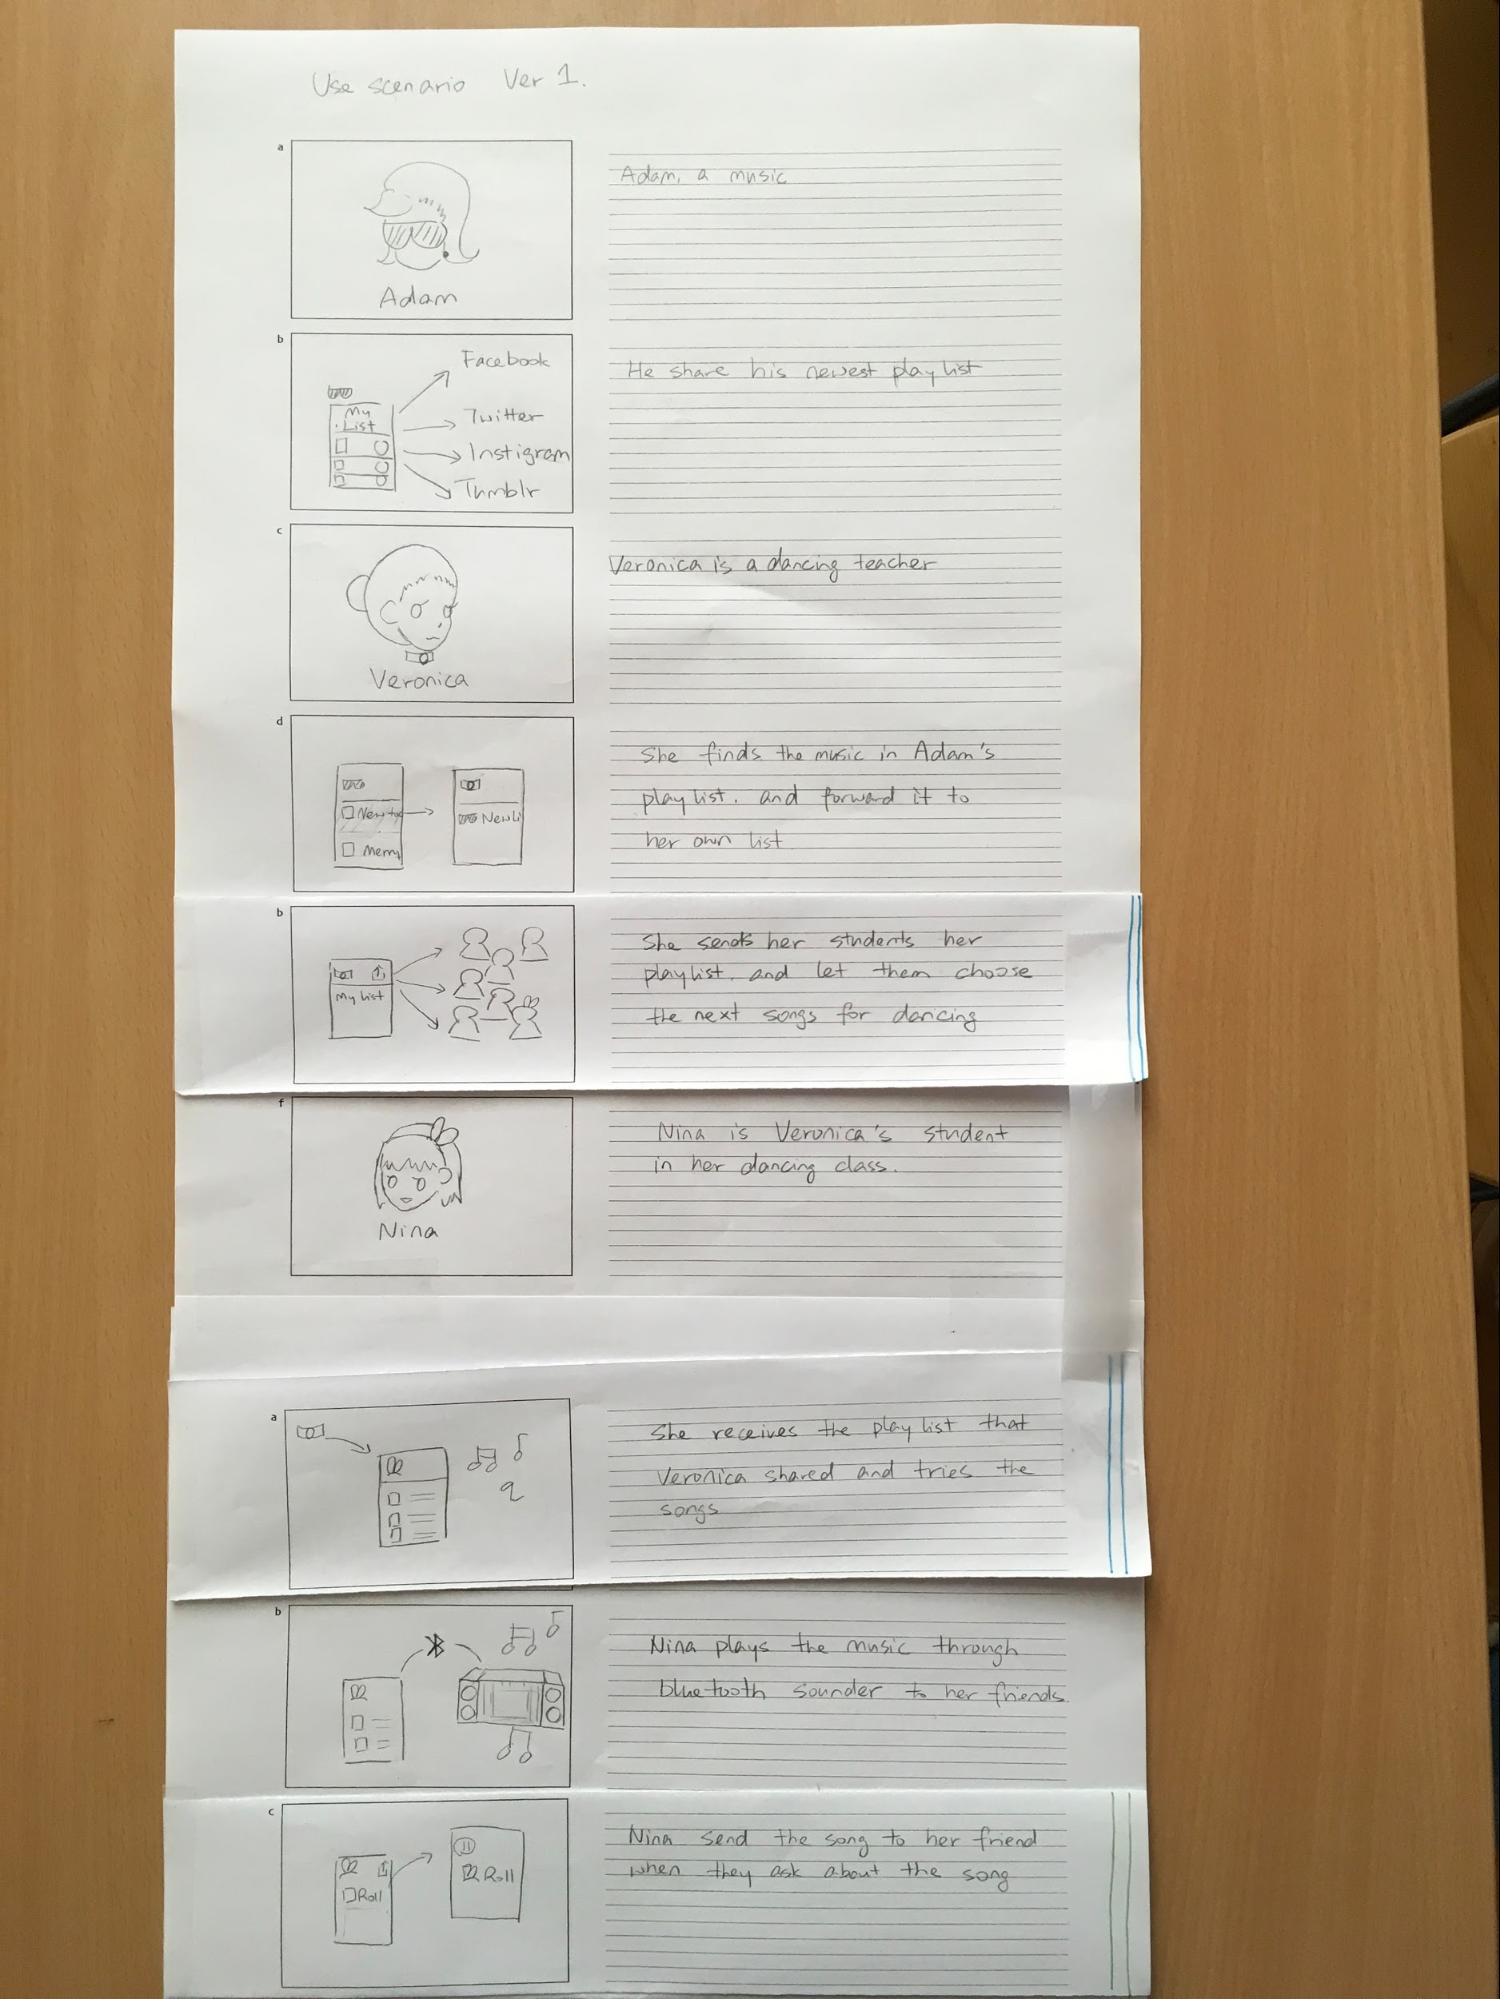 Use scenario Ver 1.
a
Adam
Adam, a music
b
My
List
Facebook
Twitter
Instigram
Tumblr
He share his newest playlist
c
Veronica
Veronica is a dancing teacher
d
Merry
She finds the music in Adam's
playlist. and forward it to
her own list
b
My List
She sends her students her
playlist. and let them choose
the next songs for dancing
f
Nina
Nina is Veronica's student
in her dancing class.
a
She receives the playlist that
Veronica shared and tries the
songs
b
Nina plays the music through
bluetooth sounder to her friends.
c
Roll
Roll
Nina send the song to her friend
when they ask about the song